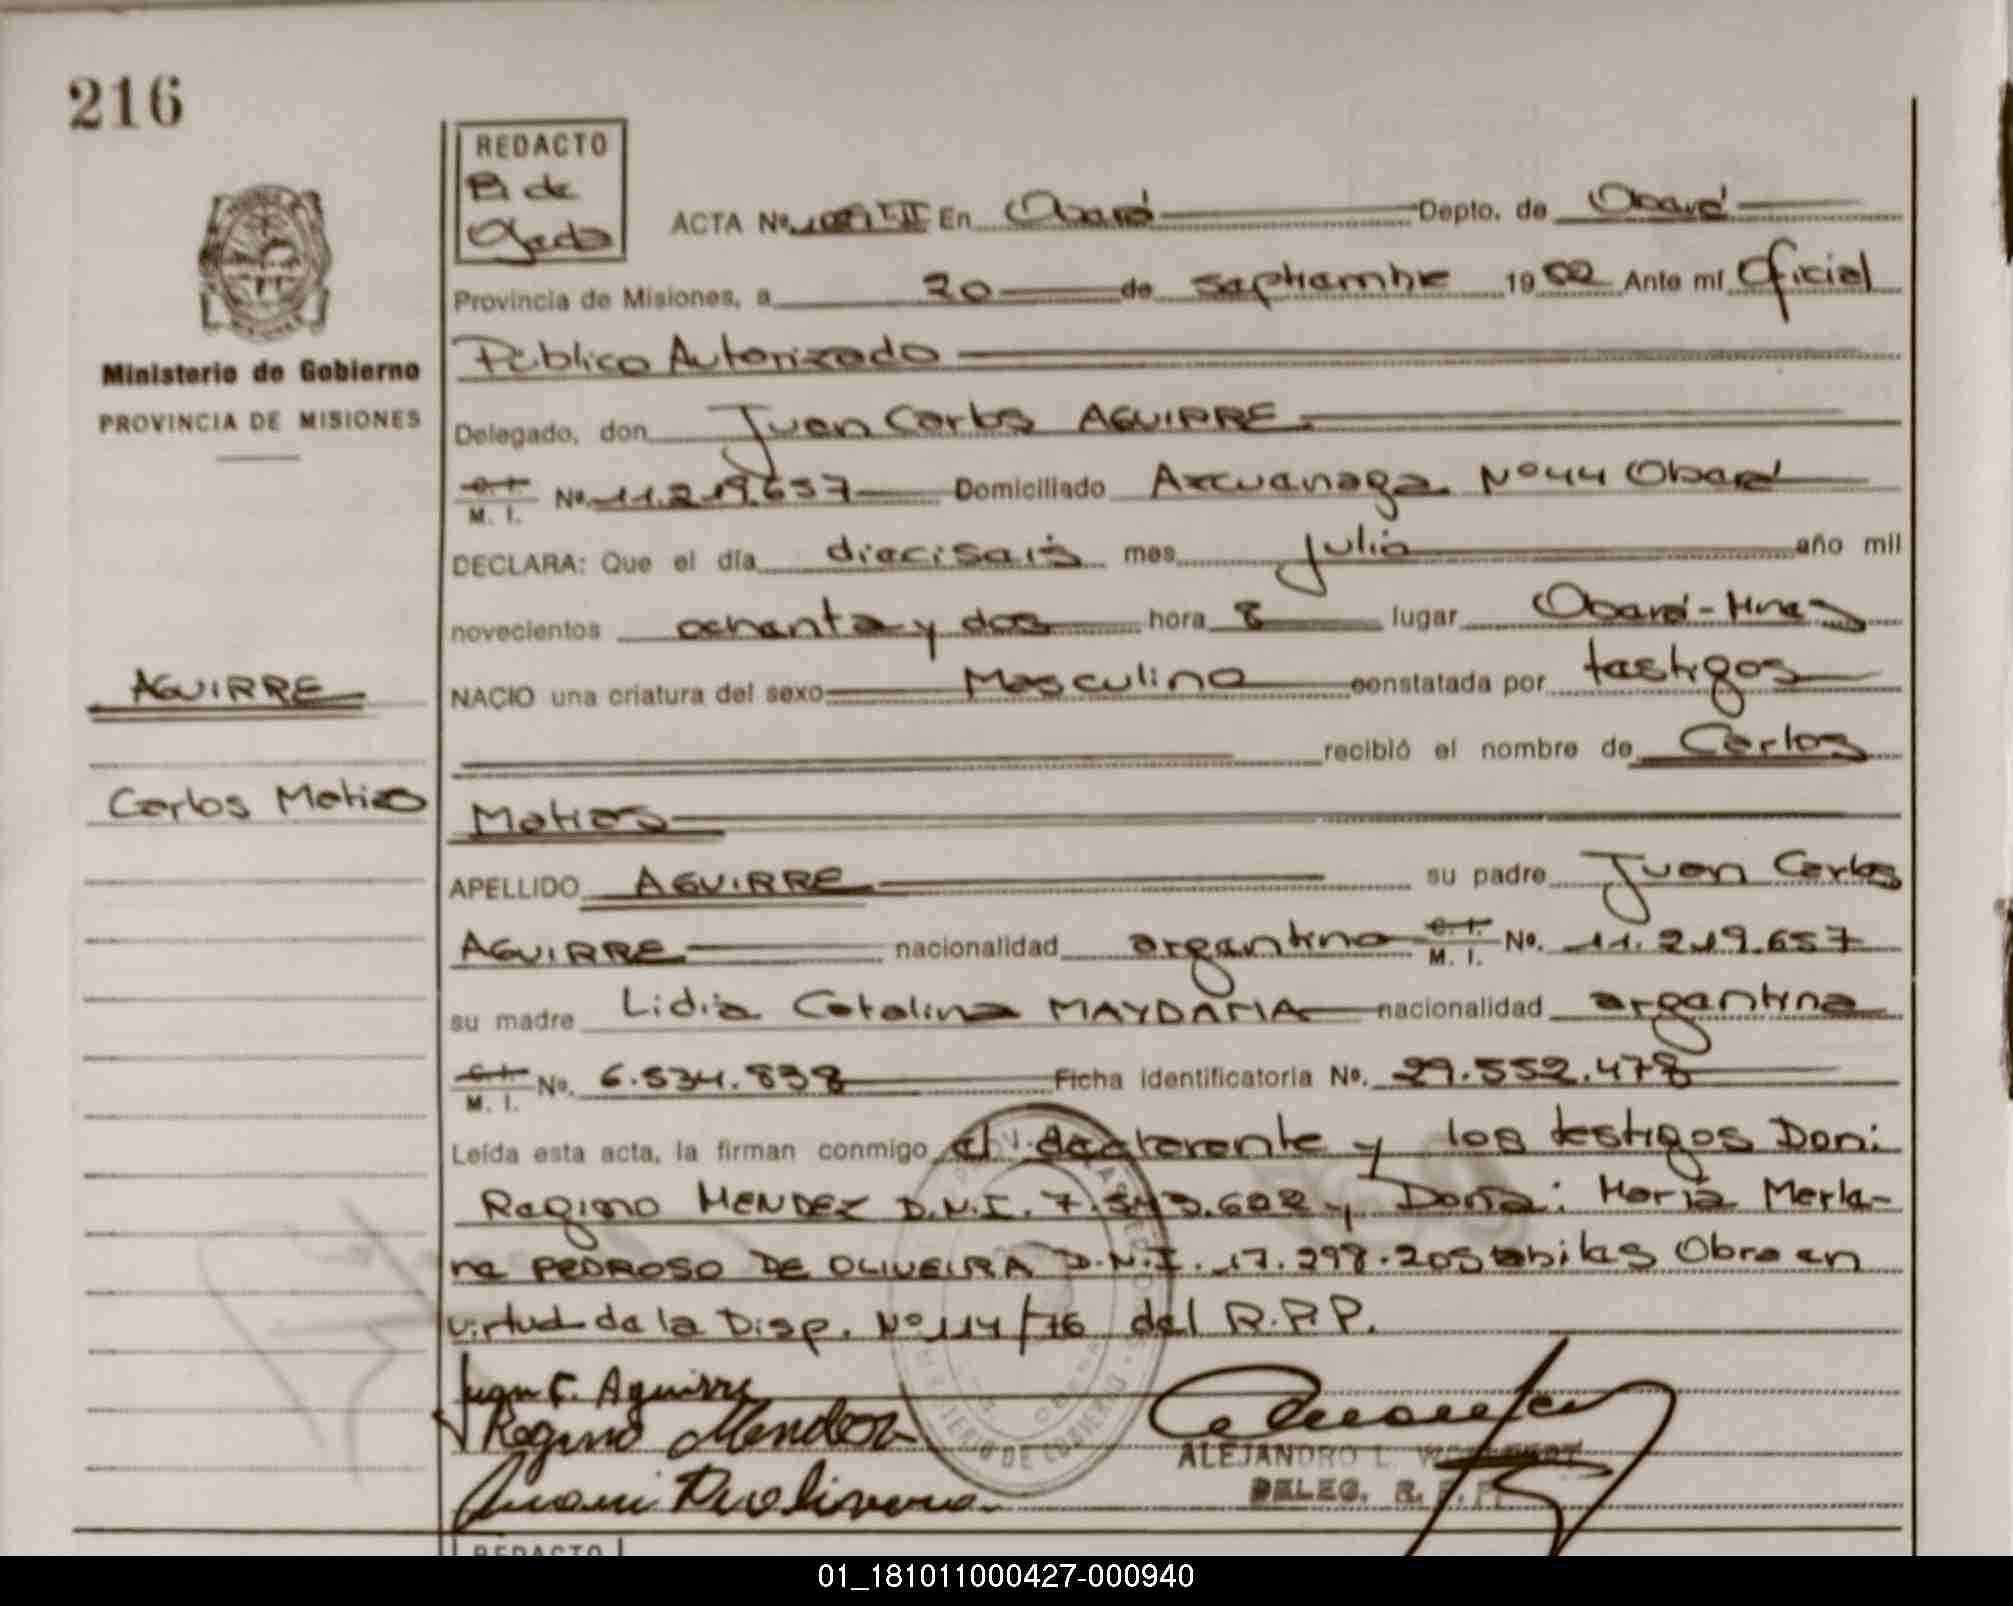 216
REDACTO
B de
Ojeda
ACTA Nº T-II En Oberá Depto. de Oberá
Provincia de Misiones, a 20 de septiembre 1982 Ante mí Oficial
Público Autorizado
Ministerio de Gobierno
PROVINCIA DE MISIONES
Delegado, don Juan Carlos AGUIRRE
C. I. M. I. Nº 11.219.657 Domiciliado Azcuenaga Nº 44 Oberá
DECLARA: Que el día dieciseis mes julio año mil
novecientos ochenta y dos hora 8 lugar Oberá - Mnes
NACIO una criatura del sexo Masculino constatada por testigos
recibió el nombre de Carlos
Matias
AGUIRRE
Carlos Matias
APELLIDO AGUIRRE su padre Juan Carlos
AGUIRRE nacionalidad argentino C. I. M. I. Nº. 11.219.657
su madre Lidia Catalina MAYDANA nacionalidad argentina
C. I. M. I. Nº. 6.534.838 Ficha identificatoria Nº. 29.552.478
Leída esta acta, la firman conmigo el declarante y los testigos Don:
Regino MENDEZ D.N.I. 7.543.602 y Doña: María Merla-
ne PEDROSO DE OLIVEIRA D.N.I. 17.298.205 Obra en
virtud de la Disp. Nº 114/76 del R.P.P.
Juan C. Aguirre
Regino Mendez
ALEJANDRO L.
DELEG. R.P.P.
REDACTO
01_181011000427-000940